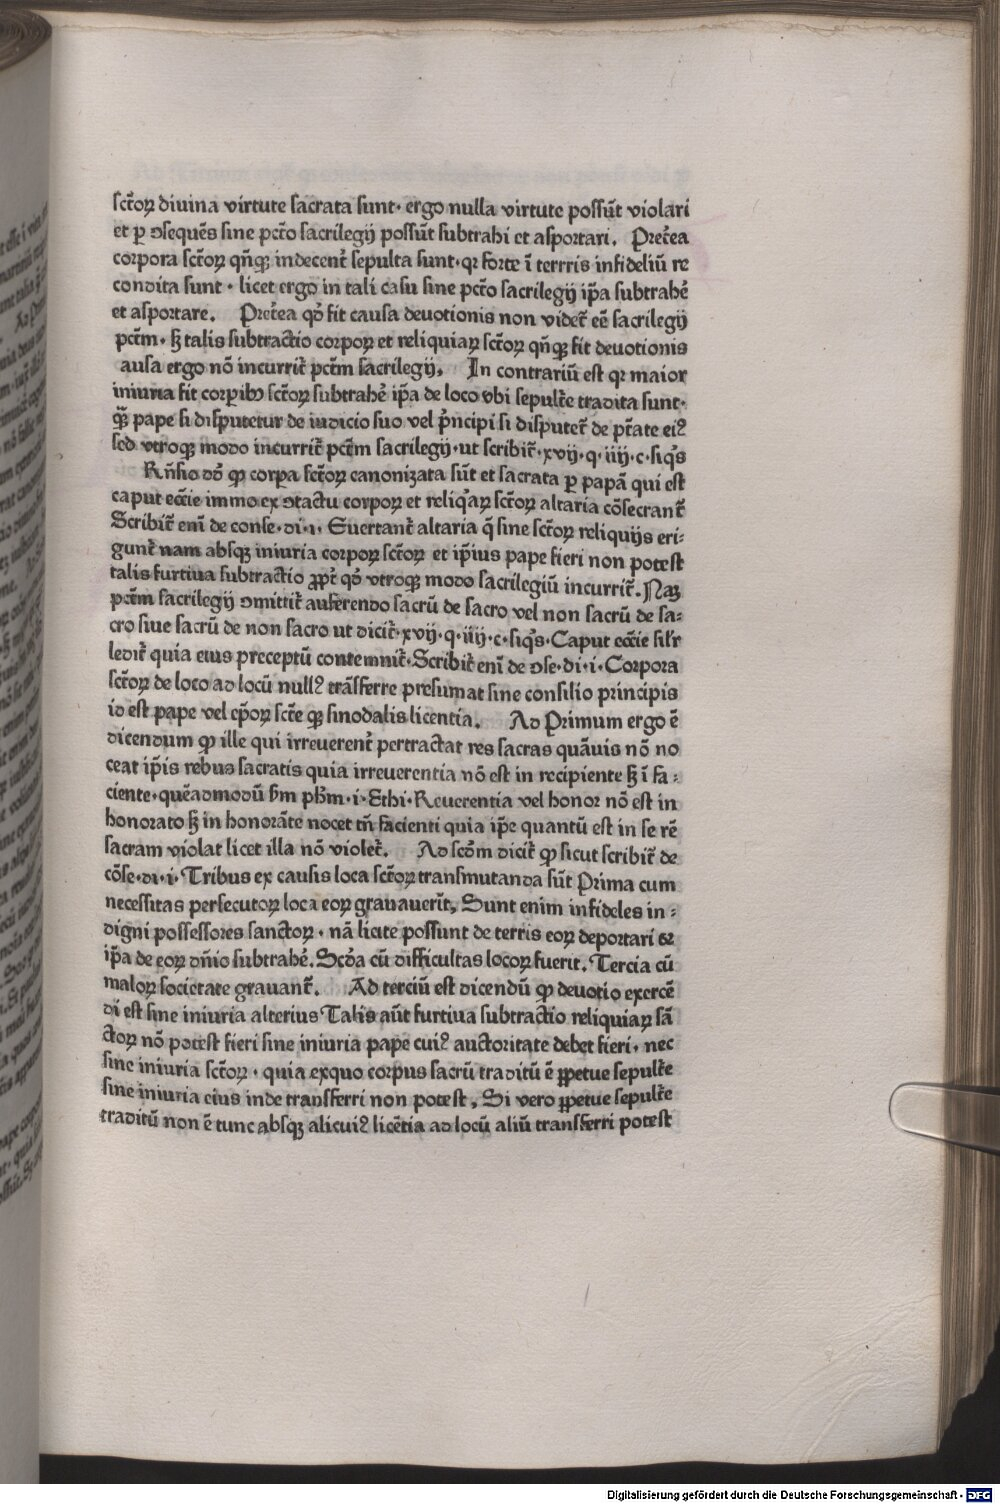 sctõꝝ diuina virtute sacrata sunt· ergo nulla virtute possũt violari
et ꝑ ꝯsequẽs sine pctõ sacrilegij possũt subtrahi et asportari. Preťea
corpora sctõꝝ qñqꝫ indecenť sepulta sunt·qꝛ forte ĩ terrris infideliũ re
condita sunt · licet ergo in tali casu sine pctõ sacrilegij ip̃a subtraheꝛ̃
et asportare. Preťea qđ fit causa deuotionis non videt̃ eẽ sacrilegij
pctm̃· sꝫ talis subtractio corpoꝝ et reliquiaꝝ sctõꝝ qñqꝫ fit deuotionis
ausa ergo nõ incurrit̃ pctm̃ sacrilegij. In contrariũ est qꝛ maior
iniuria fit corpibꝰ sctõꝝ subtraheꝛ̃ ip̃a de loco vbi sepult̃e tradita sunt·
q̃ꝫ pape si disputetur de iudicio suo vel pͥncipi si disputet̃ de pt̃ate eiꝰ
sed vtroqꝫ modo incurrit̃ pctm̃ sacrilegij·ut scribit̃·xvij·q·iiij·c·siq̃s
Rñsio dõ ꝙ corpa sctõꝝ canonizata sũt et sacrata ꝑ papã qui est
caput eccĩe immo ex ꝯtactu corpoꝝ et reliqͣꝝ sctõꝝ altaria cõsecrant̃
Scribit̃ eni᷑ de conse·di·i· Euertant̃ altaria q̃ sine sctõꝝ reliquijs eri-
gunt̃ nam absqꝫ iniuria corpoꝝ sctõꝝ et ip̃ius pape fieri non potest
talis furtiua subtractio ꝓpt̃ qđ vtroqꝫ modo sacrilegiũ incurrit̃. Naꝫ
pctm̃ sacrilegij ꝯmittit̃ auferendo sacrũ de sacro vel non sacrũ de sa-
cro siue sacrũ de non sacro ut dicit̃·xvij·q·iiij·c·siq̃s· Caput eccĩe sil̃r
ledit̃ quia eius preceptũ contemnit̃·Scribit̃ eni᷑ de ꝯse·di·i· Corpora
sctõꝝ de loco ad locũ nullꝰ trãsferre presumat sine consilio principis
id est pape vel ep̃oꝝ sct̃e qꝫ sinodalis licentia. Ad Primum ergo ẽ
dicendum ꝙ ille qui irreuerenť pertractat res sacras quãuis nõ no
ceat ip̃is rebus sacratis quia irreuerentia nõ est in recipiente sꝫ ĩ fa-
ciente·quẽadmodũ ẜm ph̃m·i·Ethi·Reuerentia vel honor nõ est in
honorato sꝫ in honorãte nocet tñ facienti quia ip̃e quantũ est in se rẽ
sacram violat licet illa nõ violet̃. Ad scdm̃ dicit̃ ꝙ sicut scribit̃ de
cõse·di·i· Tribus ex causis loca sctõꝝ transmutanda sũt Prima cum
necessitas persecutoꝝ loca eoꝝ grauauerit̃, Sunt enim infideles in-
digni possessores sanctoꝝ · nã licite possunt de terris eoꝝ deportari ⁊
ip̃a de eoꝝ dñio subtraheꝛ̃. Scd̃a cũ difficultas locoꝝ fuerit. Tercia cũ
maloꝝ societate grauant̃. Ad terciũ est dicendũ ꝙ deuotio exercẽ
di est sine iniuria alterius Talis aũt furtiua subtractio reliquiaꝝ sã
ctoꝝ nõ potest fieri sine iniuria pape cuiꝰ auctoritate debet fieri· nec
sine iniuria sctõꝝ · quia exquo corpus sacrũ traditũ ẽ ꝓpetue sepult̃e
sine iniuria eius inde transferri non potest, Si vero ꝓpetue sepult̃e
traditũ non ẽ tunc absqꝫ alicuiꝰ licẽtia ad locũ aliũ transferri potest
Digitalisierung gefördert durch die Deutsche Forschungsgemeinschaft - DFG